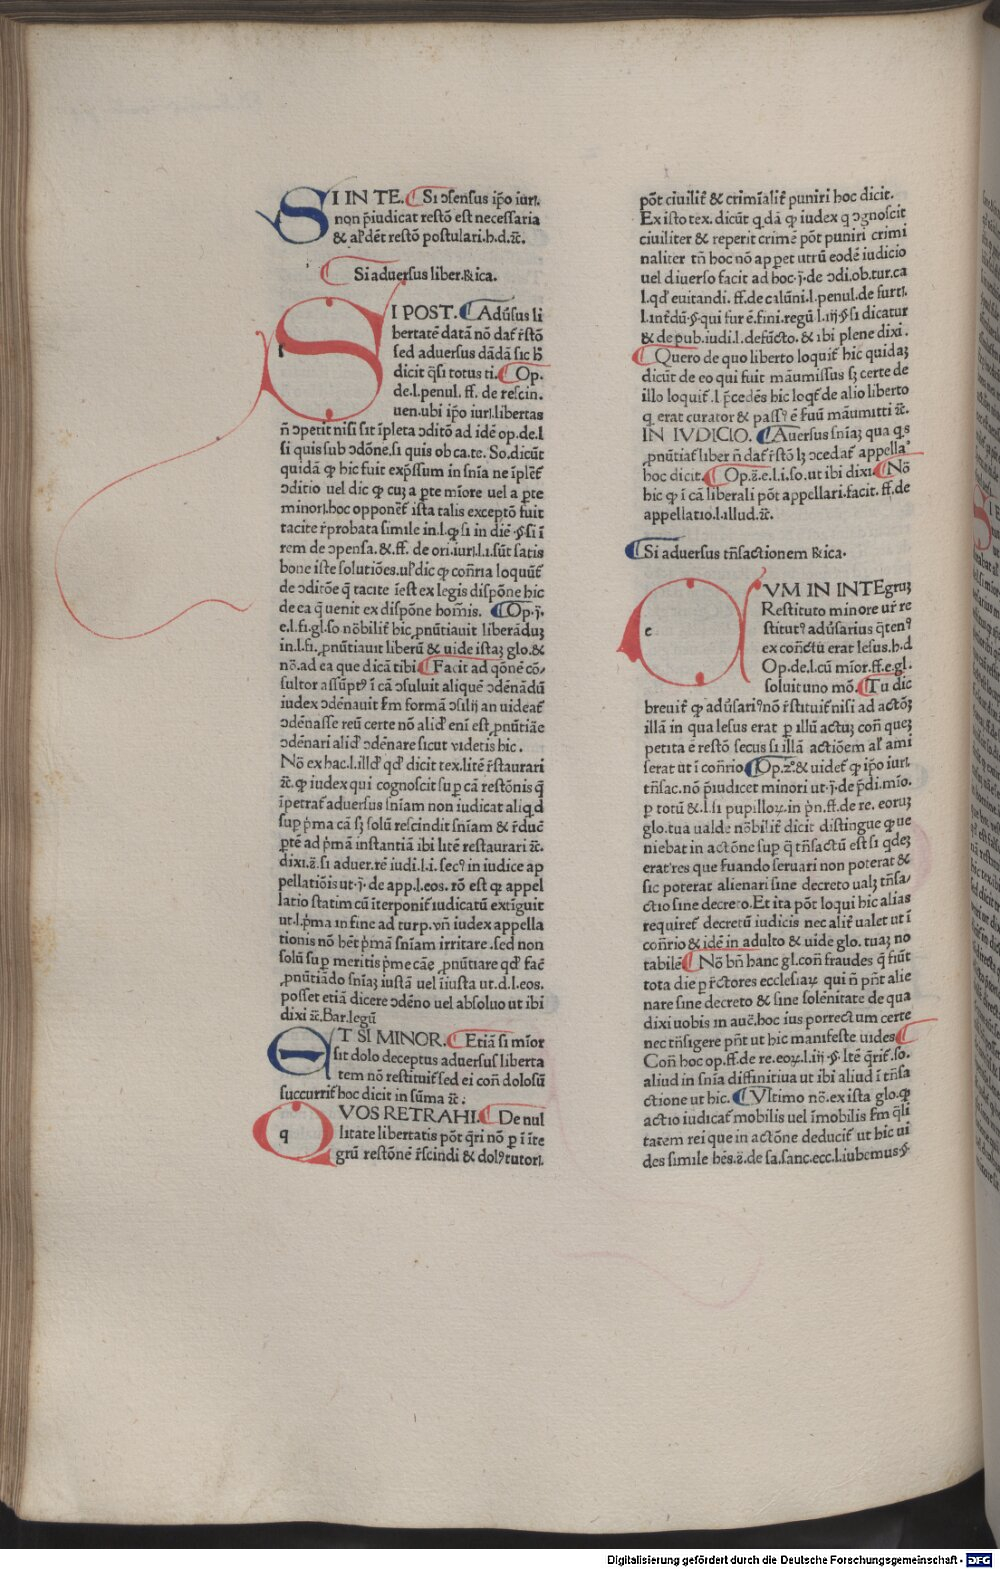 SI IN TE. Si ↄsensus ip̄o iurꝭ.
non p̄iudicat restō est necessaria
& alꝰdēt restō postulari.h.d.⁊c̄.
Si aduersus liber.&ica.
SI POST. Adūsus li
bertatē datā nō daꝉ r̄stō
sed aduersus dādā sic h̄
dicit q̄si totus ti. Op.
de.l.penul. ff. de rescin.
uen.ubi ip̄o iurꝭ.libertas
n̄ ↄpetit nisi sit īpleta ↄditō ad idē op.de.l
si quis sub ↄdōne.si quis ob ca.te. So.dicūt
quidā ꝙ hic fuit exp̄ssum in snīa ne īpleꝉ
ↄditio uel dic ꝙ cuꝫ a ꝑte mīore uel a ꝑte
minorꝭ.hoc opponeꝉ ista talis exceptō fuit
tacite r̄probata simile in.l.ꝙ si in diē.§.si ī
rem de ↄpensa.&.ff. de ori.iurꝭ.l.i.sūt satis
bone iste solutiōes.ul'dic ꝙ con̄ria loquūꝉ
de ↄditōe q̄ tacite īest ex legis dispōne hic
de ea q̄ uenit ex dispōne hoīs. Op.j̄.
e.l.fi.gl.so nōbiliꝉ hic ꝓnūtiauit liberādū
in.l.fi. ꝓnūtiauit liberū & uide istaꝫ glo.&
nō.ad ea que dicā tibi. Facit ad qōnē cō/
sultor assūptꝰ ī cā ↄsuluit aliquē ↄdēnādū
iudex ↄdēnauit ẜm formā ↄsilij an uideaꝉ
ↄdēnasse reū certe nō alid' enī est ꝓnūtiāe
ↄdēnari alid' ↄdēnare sicut videtis hic.
Nō ex hac.l.illd' qd' dicit tex.litē r̄staurari
⁊c̄. ꝙ iudex qui cognoscit suꝑ cā restōnis q̄
īpetraꝉ aduersus snīam non iudicat aliqd
suꝑ p̄ma cā sꝫ solū rescindit snīam & r̄duc̄
ꝑtē ad p̄mā instantiā ibi litē restaurari ⁊c̄.
dixi.s̄.si aduer.rē iudi.l.i.secꝰ in iudice ap
pellatiōis ut.j̄. de app.l.eos. rō est ꝙ appel
latio statim cū īterponiꝉ iudicatū extīguit
ut.l.p̄ma in fine ad turp.vn̄ iudex appella
tionis nō bet p̄mā snīam irritare .sed non
solū suꝑ meritis p̄me cāe ꝓnūtiare qd' fac̄
ꝓnūtiādo snīaꝫ iustā uel īiusta ut.d.l.eos.
posset etiā dicere ↄdēno uel absoluo ut ibi
dixi ⁊c̄.Bar.legū
ET SI MINOR. Etiā si mīor
sit dolo deceptus aduersus liberta
tem nō restituiꝉ sed ei con̄ dolosū
succurriꝉ hoc dicit in sūma ⁊c̄:
QVOS RETRAHI. De nul
litate libertatis pōt q̄ri nō ꝑ ī īte
grū restōnē r̄scindi & dolꝰ tutorꝭ.
pōt ciuiliꝉ & crimīaliꝉ puniri hoc dicit.
Ex isto tex. dicūt q.dā ꝙ iudex q ↄgnoscit
ciuiliter & reperit crimē pōt puniri crimi
naliter tn̄ hoc nō apꝑet utrū eodē iudicio
uel diuerso facit ad hoc.j̄.de ↄdi.ob.tur.ca
l.qd' euitandi. ff.de calūni.l.penul.de furtꝭ.
l.int̄dū.§.qui fur ē.fini.regū l.iij §.si dicatur
& de pub.iudi.l.defūcto.& ibi plene dixi.
Quero de quo liberto loquiꝉ hic quidaꝫ
dicūt de eo qui fuit māumissus sꝫ certe de
illo loquiꝉ.l p̄cedēs hic loqꝉ de alio liberto
q erat curator & passꝰ ē suū māumitti ⁊c̄.
IN IVDICIO. Auersus snīaꝫ qua q̄s
ꝓnūtiaꝉ liber n̄ daꝉ r̄stō lꝫ ↄcedaꝉ appella°
hoc dicit. Op.s̄.e.l.i.so.ut ibi dixi. Nō
hic ꝙ ī cā liberali pōt appellari.facit. ff.de
appellatio.l.illud.⁊c̄.
Si aduersus tn̄sactionem &ica.
CVM IN INTEgruꝫ
Restituto minore ur̄ re
stitutꝰ adūsarius q̄tenꝰ
ex con̄ctū erat lesus.h.d
Op.de.l.cū mīor.ff.e.gl.
soluit uno mō. Tu dic
breuiꝉ ꝙ adūsariꝰ nō r̄stituiꝉ nisi ad actōꝫ
illā in qua lesus erat ꝑ illū actuꝫ con̄ queꝫ
petita ē restō secus si illā actiōem al' ami
serat ut ī con̄rio. Op.z°.& uideꝉ ꝙ ip̄o iurꝭ
tn̄sac.nō p̄iudicet minori ut.j̄.de p̄di.mīo.
ꝑ totū & l.si pupilloꝝ.in p̄n.ff.de re. eoruꝫ
glo.tua ualde nōbiliꝉ dicit distingue ꝙ ue
niebat in actōne suꝑ q̄ tn̄sactū est si qdeꝫ
erat res que fuando seruari non poterat &
sic poterat alienari sine decreto ualꝫ tn̄sa/
ctio sine decreto.Et ita pōt loqui hic alias
requireꝉ decretū iudicis nec aliꝉ ualet ut ī
con̄rio & idē in adulto & uide glo. tuaꝫ no
tabilē Nō bn̄ hanc gl.con̄ fraudes q̄ fiūt
tota die ꝑ r̄ctores ecclesiaꝝ qui n̄ pn̄t alie
nare sine decreto & sine solēnitate de qua
dixi uobis in auc̄.hoc ius porrectum certe
nec tn̄sigere pn̄t ut hic manifeste uides
Con̄ hoc op.ff.de re.eoꝝ.l.iij §.ītē q̄riꝉ.so.
aliud in snīa diffinitiua ut ibi aliud ī tn̄sa
ctione ut hic. Vltimo nō.ex ista glo.ꝙ
actio iudicaꝉ mobilis uel īmobilis ẜm q̄li
tatem rei que in actōne deduciꝉ ut hic ui
des simile hēs.s̄.de sa.sanc.ecc.l.iubemus §.
Digitalisierung gefördert durch die Deutsche Forschungsgemeinschaft - DFG